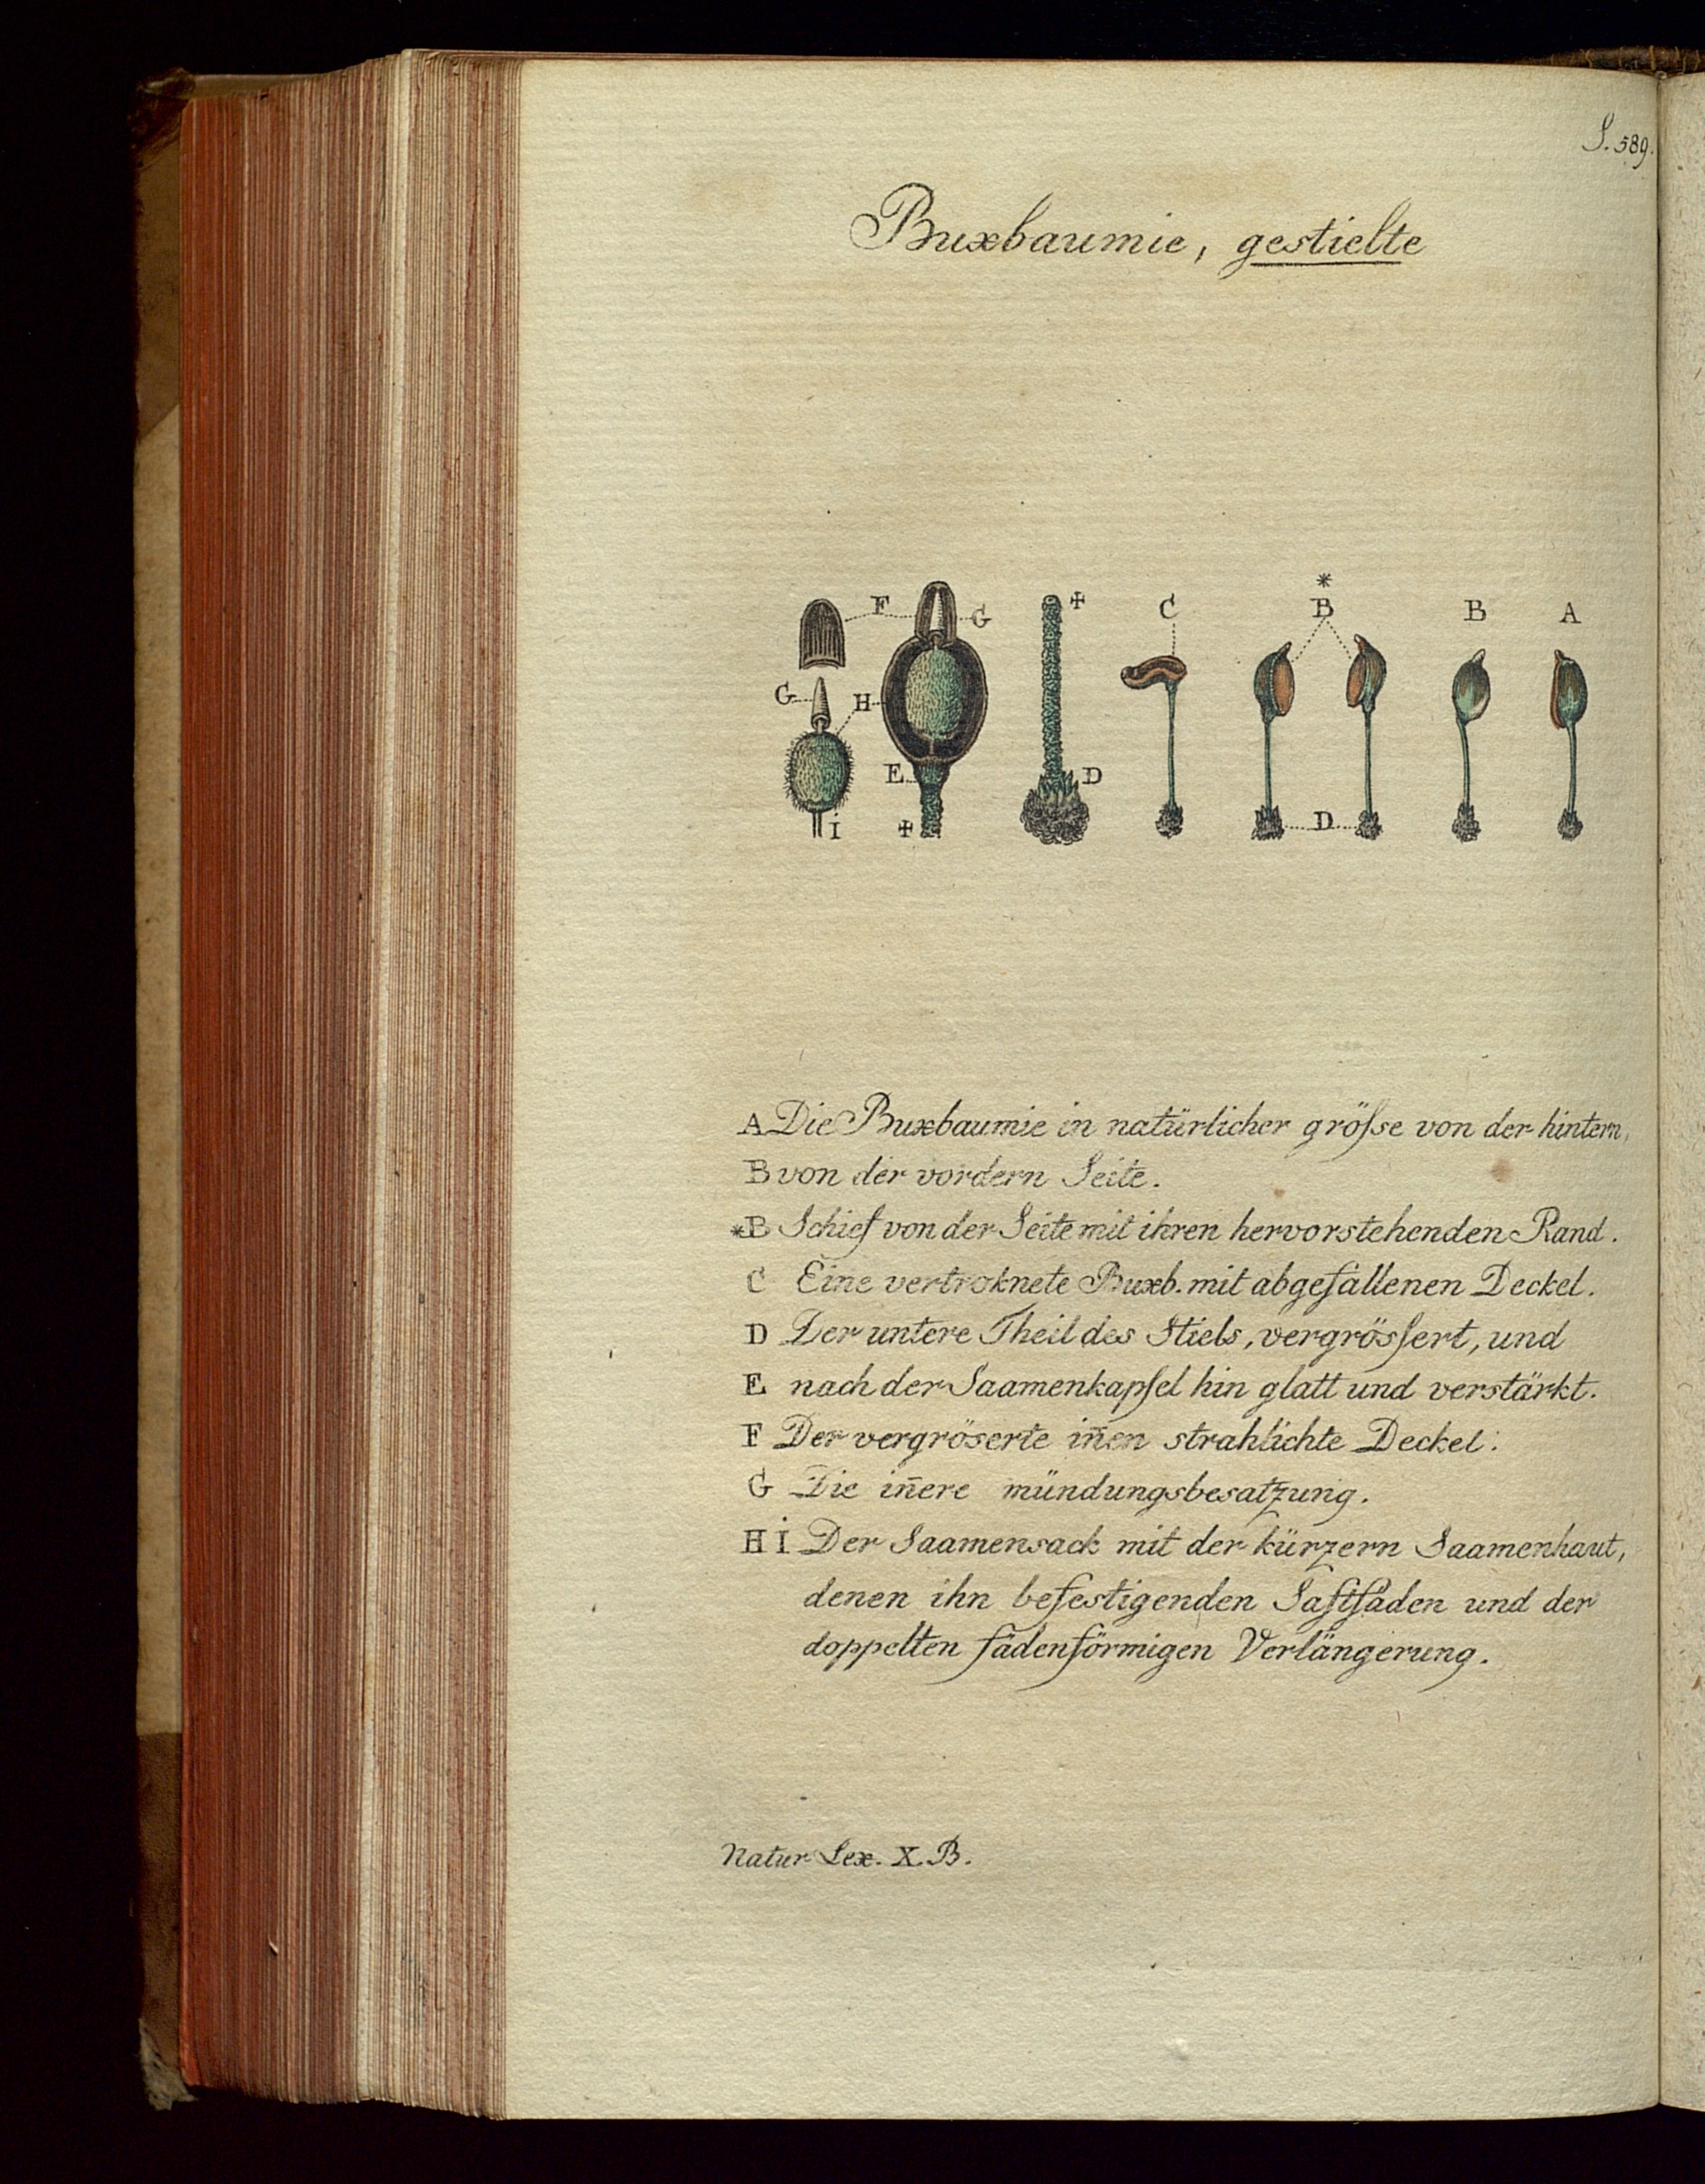 S. 589.
Buxbaumie, gestielte
*
F G ✠ C B B A
G H
E D
I ✠ D
A Die Buxbaumie in natürlicher größse von der hintern,
B von der vordern Seite.
*B Schief von der Seite mit ihren hervorstehenden Rand.
C Eine vertroknete Buxb. mit abgefallenen Deckel.
D Der untere Theil des Stiels, vergrössert, und
E nach der Saamenkapsel hin glatt und verstärkt.
F Der vergröserte in̄en strahlichte Deckel.
G Die in̄ere mündungsbesatzung.
H I Der Saamensack mit der kürzern Saamenhaut,
denen ihn befestigenden Saftfäden und der
doppelten fädenförmigen Verlängerung.
Natur Lex. X. B.